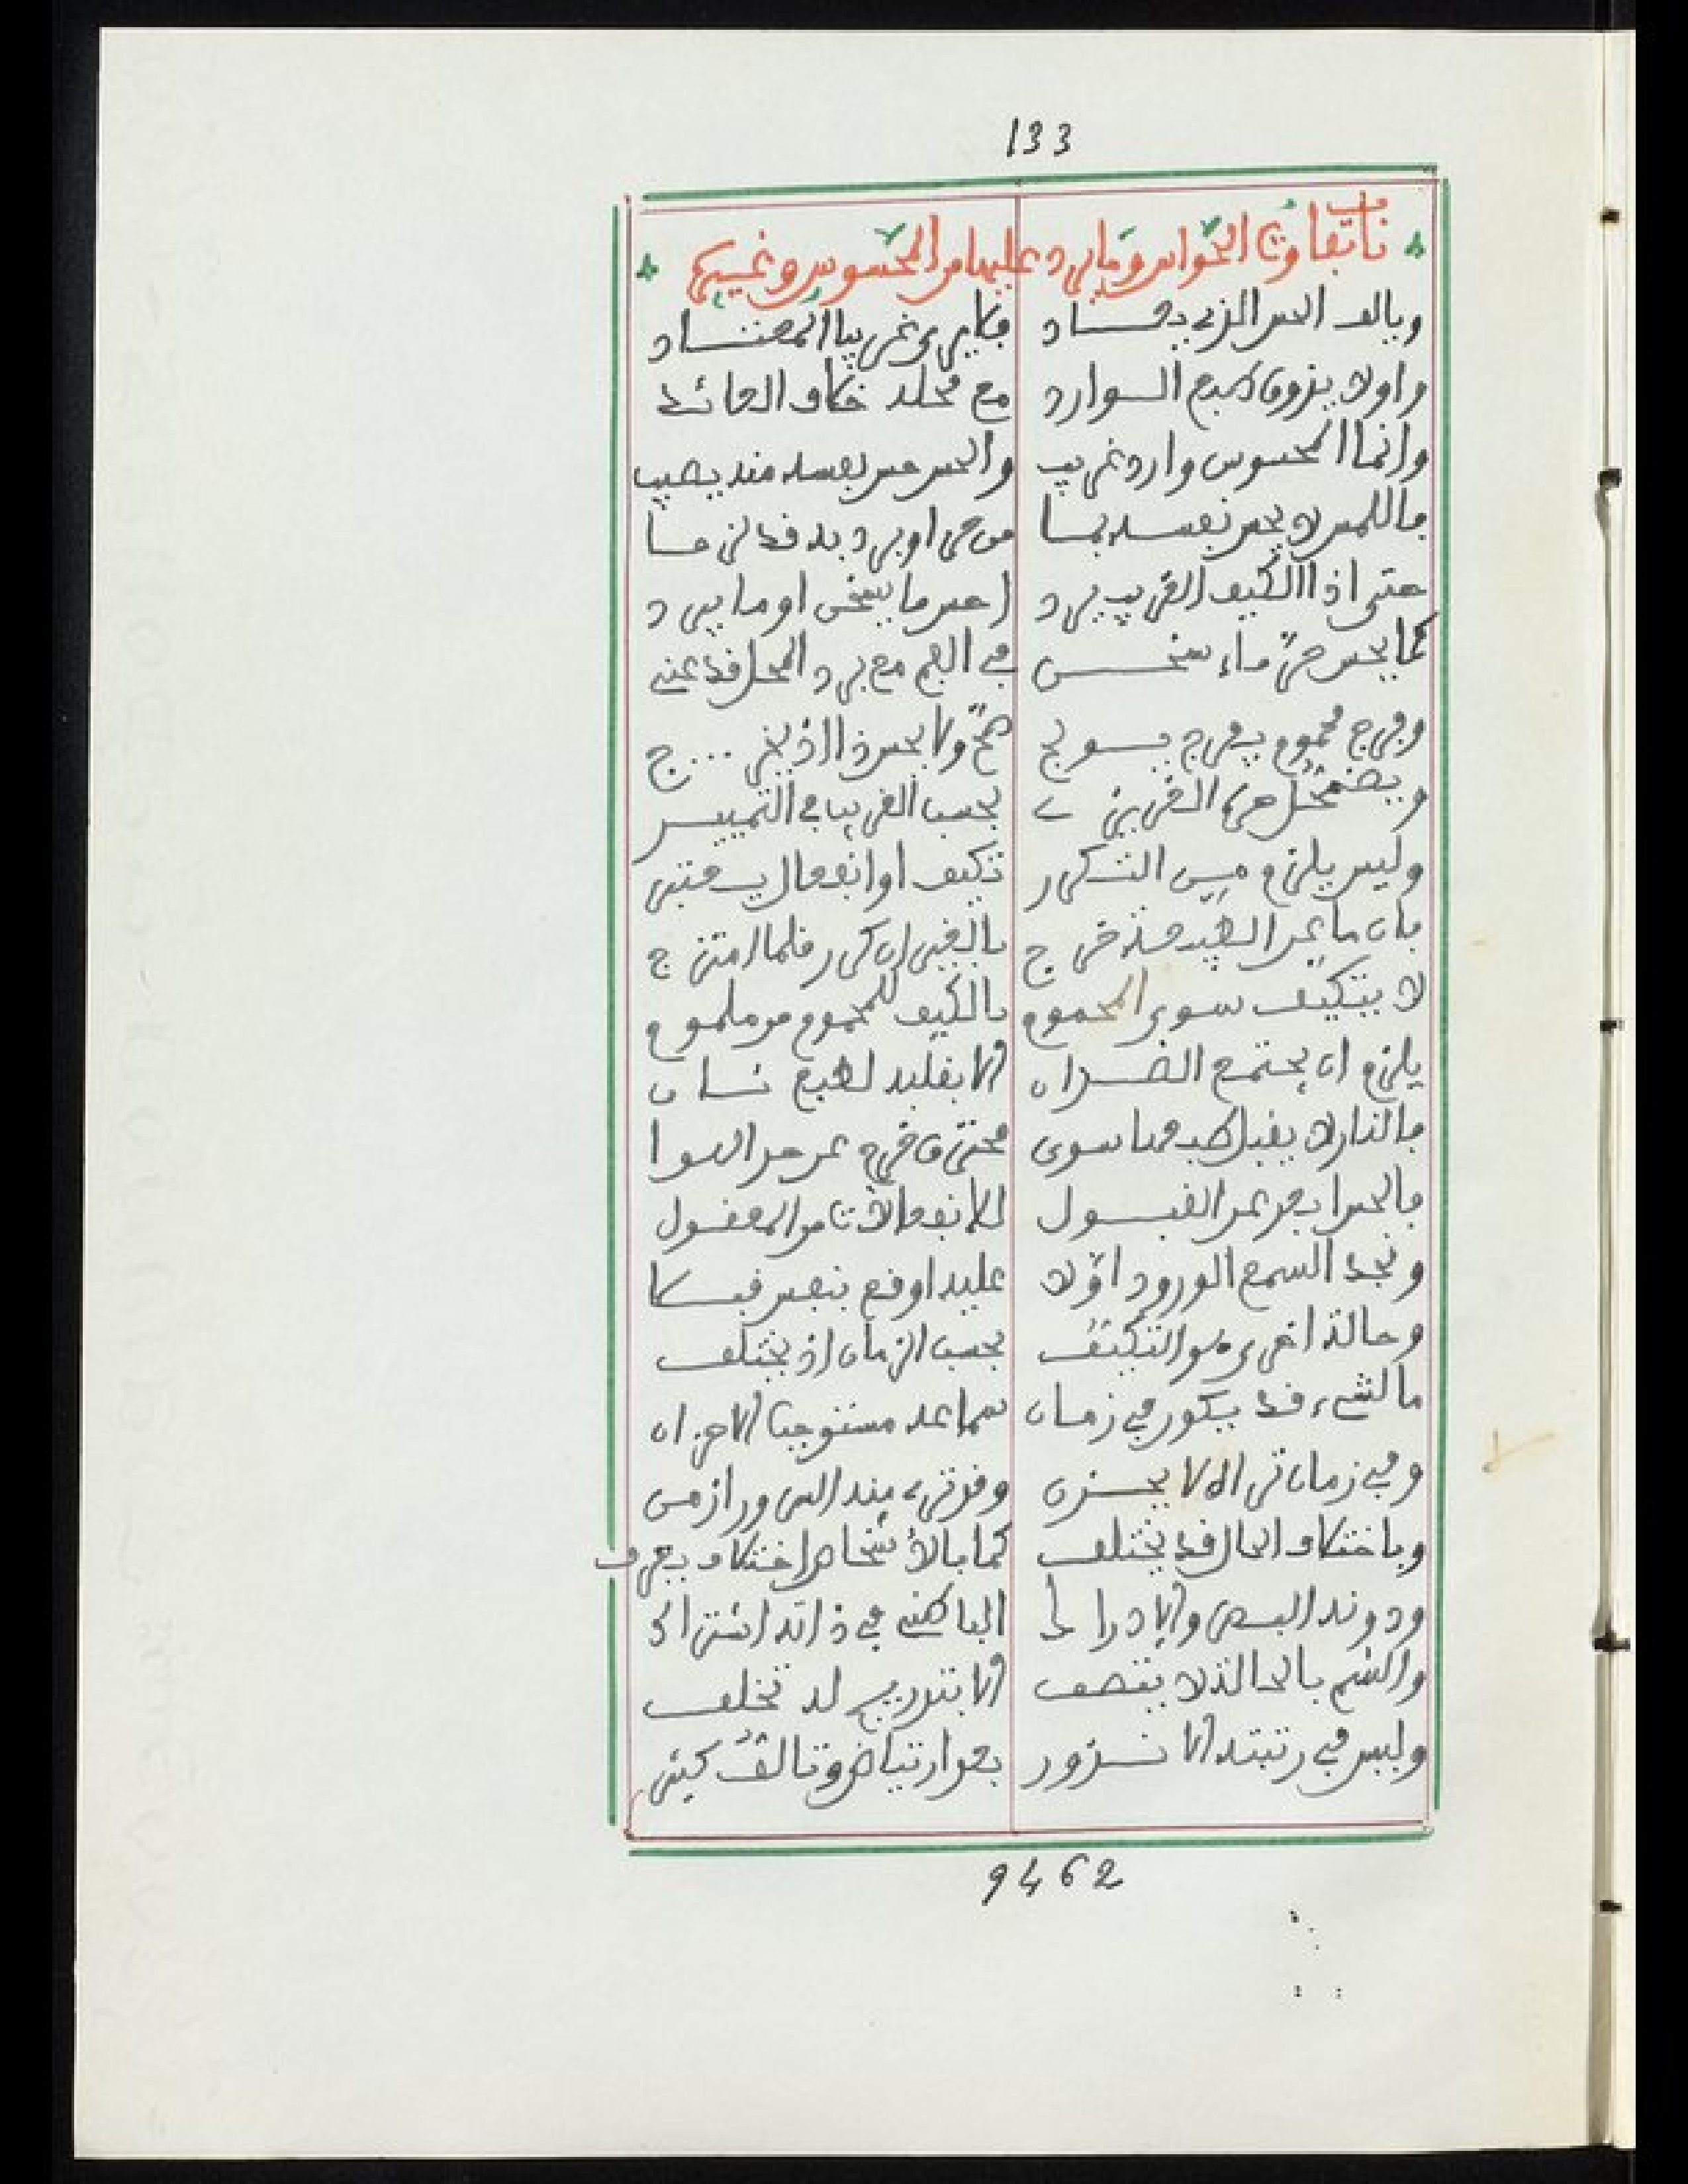 133
تفاوت الحواس وما يرد عليها من المحسوس وغيرها
وبالف الحس الذي يعاد فلا يرى غريبا المعتاد
واولا يذوق طعم الوارد مع محله خلاف العائد
وانما المحسوس وارد غريب والحس عن نفسه منه يصيب
فاللمس لا يحس نفسه بما من حر او برد به قد لزما
حتى اذا الكيف الغريب يرد احس ما يسخن او ما يبرد
كما يحس حر ماء سخن في الفم مع برد المحل قد عني
وفرج محموم بفرج يولج
ويضمحل حر الغريزي بحسب الغريب في التمييز
وليس يلزم من التكرر تكيف او انفعال يعتري
فان ما عن الطبيعة خرج بالغير ان كرر فلما امتزج
لا يتكيف سوى المحموم بالكيف للمحموم من ملموم
يلزم ان يجتمع الضدان الا بقلبه لطبع ثان
فالنار لا يقبل طبعها سوى محترق خرج عن حد الهوا
فالحس ابعد عن القبول للانفعالات من المعقول
ونجد السمع الورود اولا عليه اوقع بنفس قبلا
وحالة اخرى هو التكيف بحسب الزمان اذ يختلف
فالشيء قد يكون في زمان سماعه مستوجب الاحزان
وفي زمان تراه لا يحزن وقد ترى منه السرور ازمن
وباختلاف الحال قد يختلف كما بالاشخاص اختلاف يعرف
ودونه البصر والادراك الباطني في ذاته اشتراك
والشم بالحالة لا يتصف الا بتدريج له تخلف
وليس في رتبته الا نزور بعد ارتياض وتالف كثير
9462